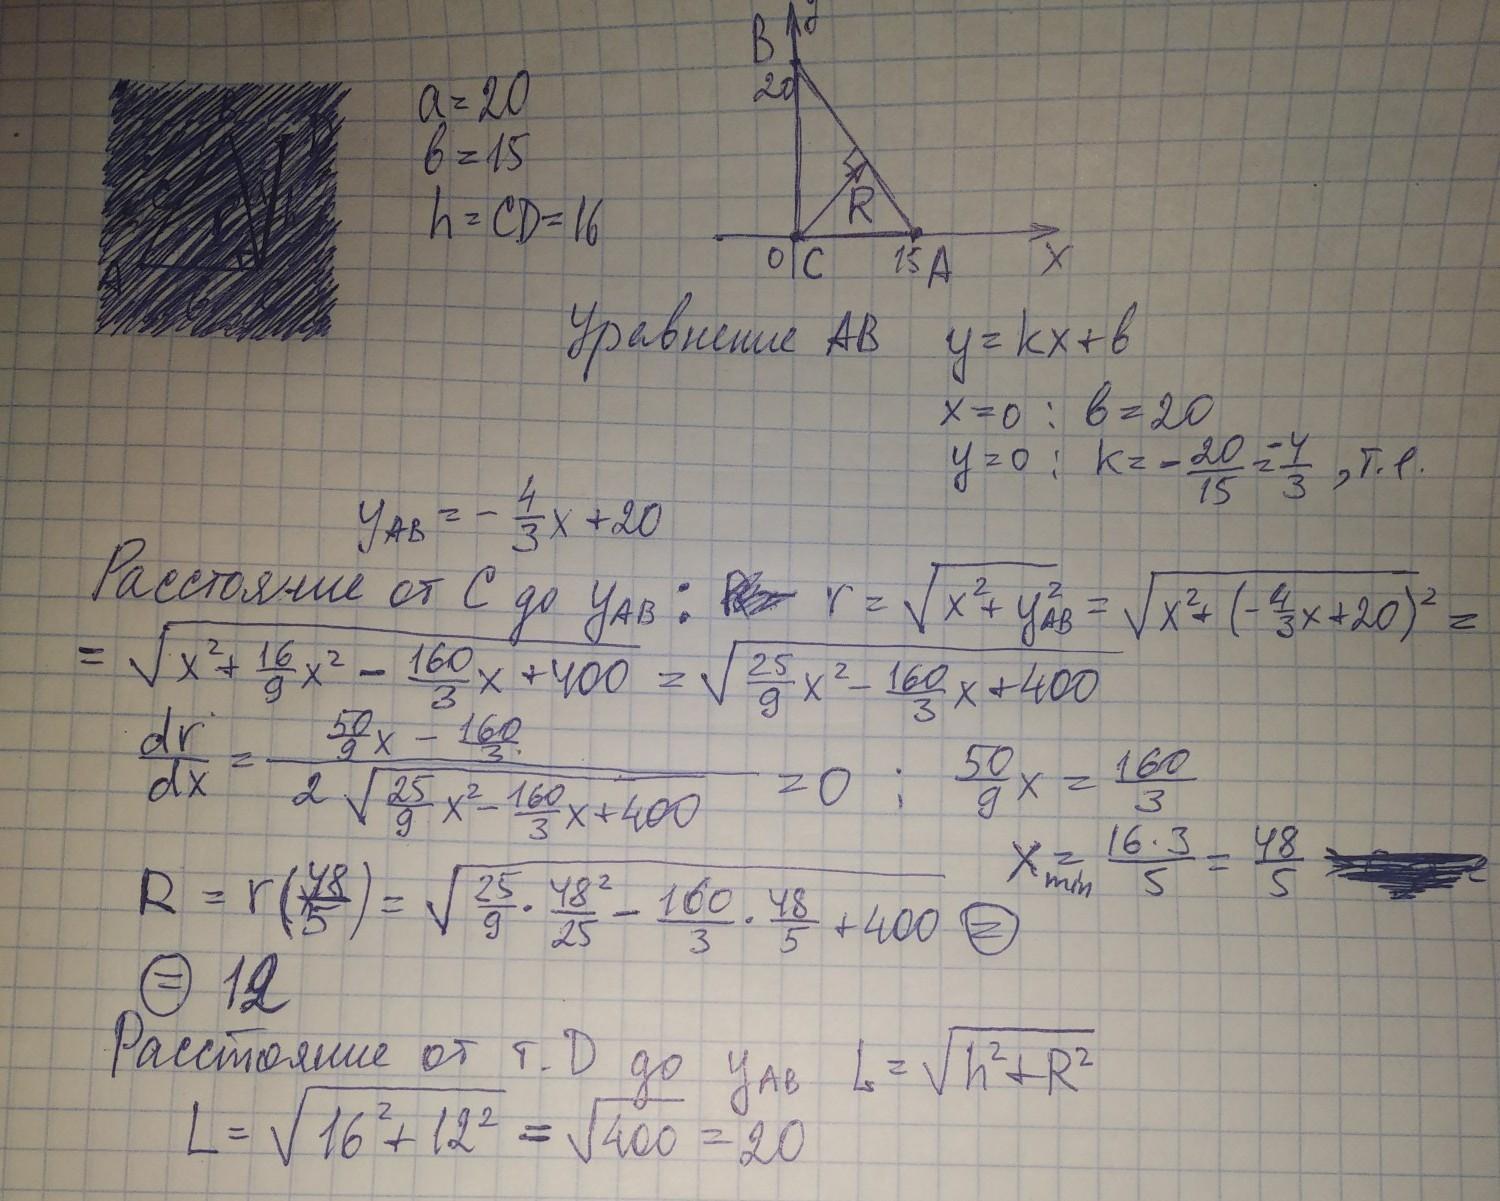 a=20
b=15
h=CD=16
B y
20
R
0 C 15 A X
Уравнение AB y=kx+b
x=0 : b=20
y=0 : k=-20/15=-4/3, т.е.
y_AB = -4/3x+20
Расстояние от C до y_AB: r = √(x²+y²_AB) = √(x²+(-4/3x+20)²) =
= √(x²+16/9x²-160/3x+400) = √(25/9x²-160/3x+400)
dr/dx = (50/9x-160/3)/(2√(25/9x²-160/3x+400)) = 0 ; 50/9x = 160/3
x_min = 16·3/5 = 48/5
R = r(48/5) = √(25/9·48²/25-160/3·48/5+400) =
= 12
Расстояние от т.D до y_AB L = √(h²+R²)
L = √(16²+12²) = √400 = 20